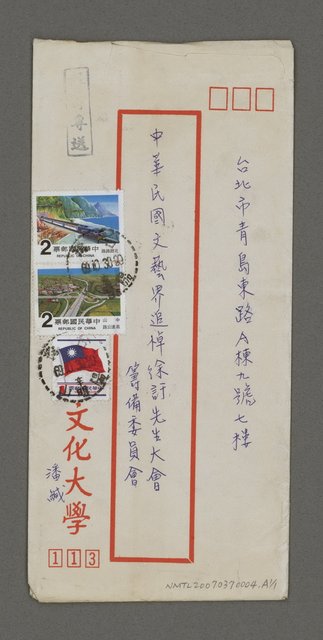 台北市青島東路A棟九號七樓
中華民國文藝界追悼徐訏先生大會
籌備委員會
專送
2
中華民國郵票
REPUBLIC OF CHINA
2
中華民國郵票
REPUBLIC OF CHINA
69.10.30.20
文化大學
潘緘
113
NMTL20070370004.A1/1